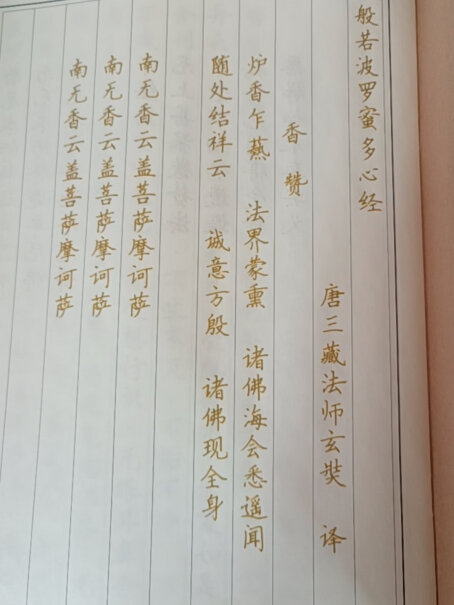 般若波罗蜜多心经
唐三藏法师玄奘 译
香赞
炉香乍爇 法界蒙熏 诸佛海会悉遥闻
随处结祥云 诚意方殷 诸佛现全身
南无香云盖菩萨摩诃萨
南无香云盖菩萨摩诃萨
南无香云盖菩萨摩诃萨